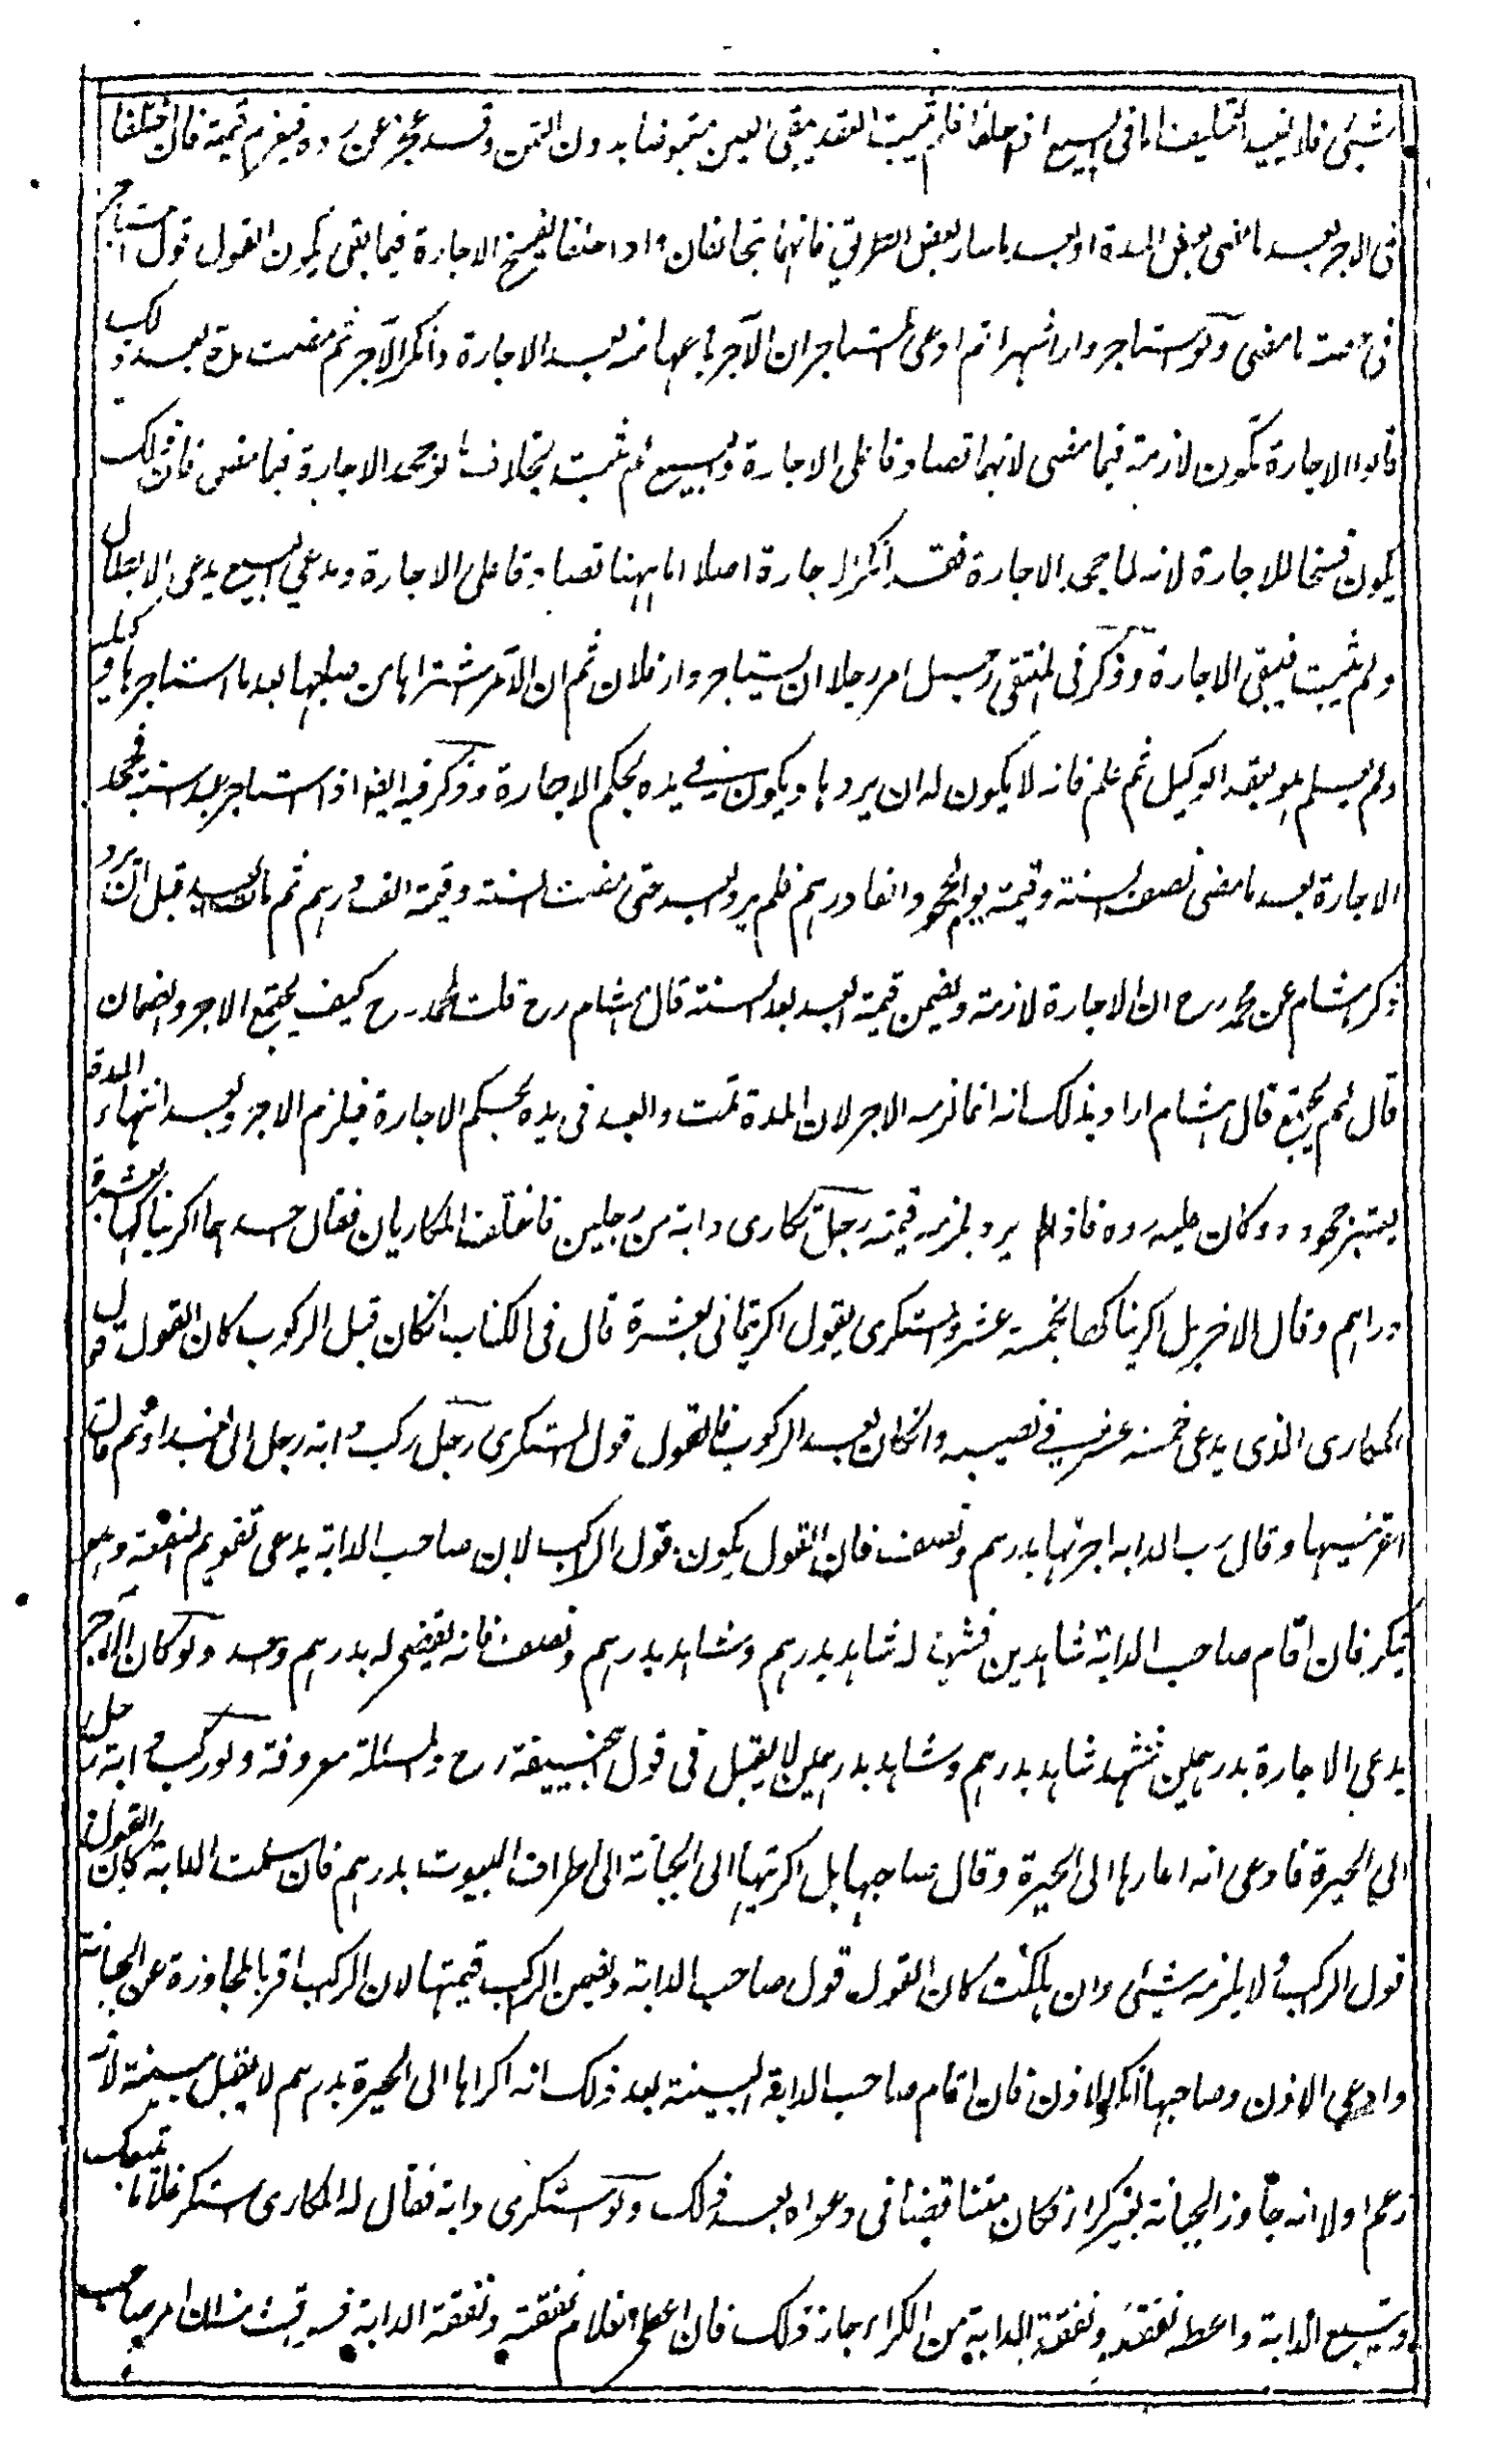 شيئ فلا يفيد التحليف اما فى البيع اذا حلفا فلم يثبت العقد يبقى العين مقبوضا بدون الثمن وقد عجز عن رده فيغرم قيمته فان اختلفا
فى الاجر بعد ما مضى بعض المدة او بعد ما سار بعض الطريق فانهما يتحالفان واذا حلفا يفسخ الاجارة فيما بقى ويكون القول قول المستاجر
فى حصة ما مضى ولو استاجر دارا شهرا ثم ادعى المستاجر ان الآجر باعها منه بعد الاجارة وانكر الآجر ثم مضت مدة بعد ذلك
قالوا الاجارة تكون لازمة فيما مضى لانهما تصادقا على الاجارة والبيع لم يثبت بخلاف ما لو جحد الاجارة فيما مضى فان ذلك
يكون فسخا للاجارة لانه لما جحد الاجارة فقد انكر الاجارة اصلا اما ههنا تصادقا على الاجارة ومدعي البيع يدعى الابطال
ولم يثبت فيبقى الاجارة وذكر فى المنتقى رجل امر رجلا ان يستاجر دار فلان ثم ان الآمر اشتراها من صاحبها بعد ما استاجرها وكيله
ولم يعلم بما يعقد الوكيل ثم علم فانه لا يكون له ان يردها ويكون في يده بحكم الاجارة وذكر فيه ايضا اذا استاجر عبدا سنة فجحد
الاجارة بعد ما مضى نصف السنة وقيمته يوم الجحود الفا درهم فلم يرد العبد حتى مضت السنة وقيمته الف درهم ثم مات العبد قبل ان يرد
ذكر هشام عن محمد رح ان الاجارة لازمة ويضمن قيمة العبد بعد السنة قال هشام رح قلت لمحمد رح كيف يجتمع الاجر والضمان
قال لم يجتمع قال هشام اراد بذلك انه انما لزمه الاجر لان المدة تمت والعبد فى يده بحكم الاجارة فيلزم الاجر وبعد انتهاء المدة
يعتبر جحوده وكان عليه رده فاذا لم يرد لزمه قيمته رجل تكارى دابة من رجلين فاختلف المكاريان فقال احدهما اكريناكها بعشرة
دراهم وقال الاخر بل اكريناكها بخمسة عشر والمستكرى يقول اكريتمانى بعشرة قال فى الكتاب ان كان قبل الركوب كان القول قول
المكارى الذى يدعى خمسة عشر في نصيبه وان كان بعد الركوب فالقول قول المستكرى رجل ركب دابة رجل الى بغداد ثم قال
اعرتنيها وقال رب الدابة اجرتها بدرهم ونصف فان القول يكون قول الراكب لان صاحب الدابة يدعى تقويم المنفعة وهو
ينكر فان اقام صاحب الدابة شاهدين فشهد له شاهد بدرهم وشاهد بدرهم ونصف فانه يقضى له بدرهم واحد ولو كان الآجر
يدعى الاجارة بدرهمين فشهد شاهد بدرهم وشاهد بدرهمين لا يقبل فى قول ابيحنيفة رح والمسئلة معروفة ولو ركب دابة رجل
الى الحيرة فادعى انه اعارها الى الحيرة وقال صاحبها بل اكريتها الى الجبانة الى اطراف البيوت بدرهم فان سلمت الدابة كان القول
قول الراكب ولا يلزمه شيئ وان هلكت كان القول قول صاحب الدابة ويضمن الراكب قيمتها لان الراكب اقر بالمجاوزة عن الجبانة
وادعى الاذن وصاحبها انكر الاذن فان اقام صاحب الدابة البينة بعد ذلك انه اكراها الى الحيرة بدرهم لا يقبل بينته لانه
زعم اولا انه جاوز الجبانة بغير كراء فكان متناقضا فى دعواه بعد ذلك ولو استكرى دابة فقال له المكارى استكر غلاما يتبعك
ويتبع الدابة واعطه نفقته ونفقة الدابة من الكراء جاز ذلك فان اعطى الغلام نفقته ونفقة الدابة فسرقت منه ان امر صاحب